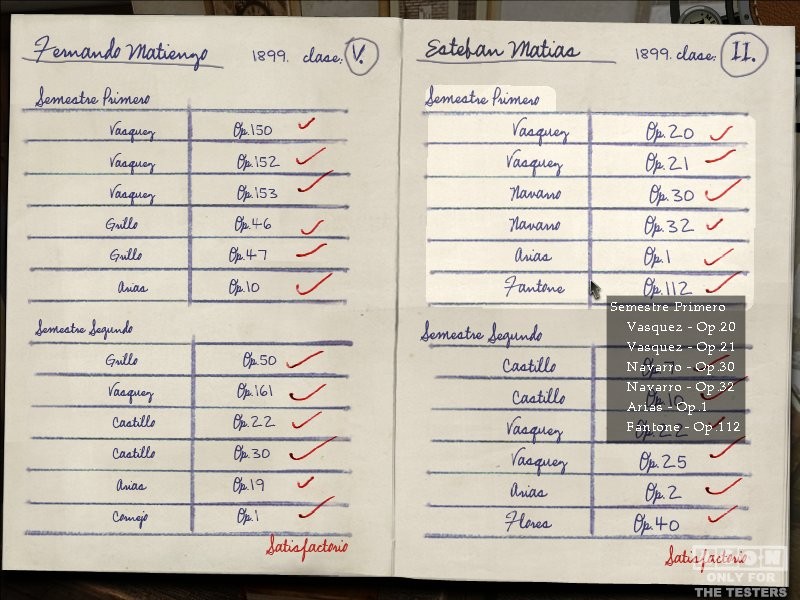 Fernando Matiengo 1899. clase: V.
Semestre Primero
Vasquez Op.150
Vasquez Op.152
Vasquez Op.153
Grillo Op.46
Grillo Op.47
Arias Op.10
Semestre Segundo
Grillo Op.50
Vasquez Op.161
Castillo Op.22
Castillo Op.30
Arias Op.19
Cornejo Op.1
Satisfactorio
Esteban Matias 1899. clase: II.
Semestre Primero
Vasquez Op.20
Vasquez Op.21
Navarro Op.30
Navarro Op.32
Arias Op.1
Fantone Op.112
Semestre Segundo
Castillo Op.7
Castillo Op.10
Vasquez Op.22
Vasquez Op.25
Arias Op.2
Flores Op.40
Satisfactorio
Semestre Primero
Vasquez - Op.20
Vasquez - Op.21
Navarro - Op.30
Navarro - Op.32
Arias - Op.1
Fantone - Op.112
ONLY FOR
THE TESTERS